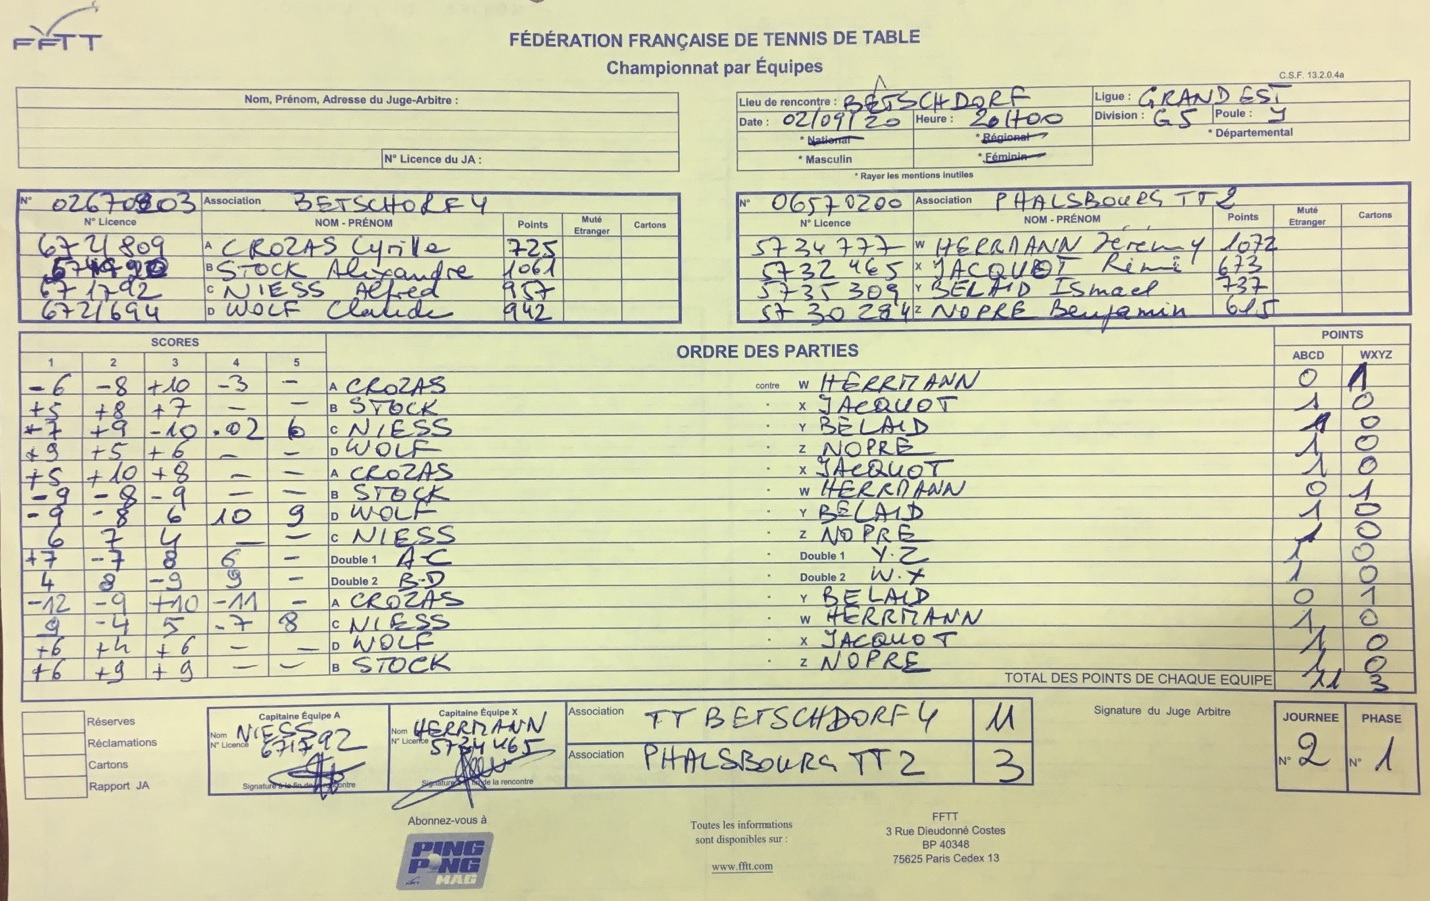 FFTT
FÉDÉRATION FRANÇAISE DE TENNIS DE TABLE
Championnat par Équipes
C.S.F. 13.2.0.4a
Nom, Prénom, Adresse du Juge-Arbitre :
N° Licence du JA :
Lieu de rencontre : BETSCHDORF Ligue : GRAND EST
Date : 02/09/20 Heure : 20H00 Division : G5 Poule : y
* National * Régional * Départemental
* Masculin * Féminin
* Rayer les mentions inutiles
N° 02670803 Association BETSCHORF 4
N° Licence NOM - PRÉNOM Points Muté Etranger Cartons
6721809 A CROZAS Cyrille 725
B STOCK Alexandre 1061
671792 C NIESS Alfred 957
6721694 D WOLF Claude 942
N° 06570200 Association PHALSBOURG TT 2
N° Licence NOM - PRÉNOM Points Muté Etranger Cartons
5734777 W HERRMANN Jérémy 1072
5732465 X JACQUOT Rémi 673
5735309 Y BELAID Ismael 737
5730284 Z NOPRE Benjamin 615
SCORES ORDRE DES PARTIES POINTS
1 2 3 4 5 ABCD WXYZ
-6 -8 +10 -3 - A CROZAS contre W HERRMANN 0 1
+5 +8 +7 - - B STOCK X JACQUOT 1 0
+7 +9 -10 6 C NIESS Y BELAID 1 0
+9 +5 +6 - - D WOLF Z NOPRE 1 0
+5 +10 +8 - - A CROZAS X JACQUOT 1 0
-9 -8 -9 - - B STOCK W HERRMANN 0 1
-9 -8 6 10 9 D WOLF Y BELAID 1 0
6 7 4 - - C NIESS Z NOPRE 1 0
+7 -7 8 6 - Double 1 A-C Double 1 Y.Z 1 0
4 8 -9 9 - Double 2 B-D Double 2 W.X 1 0
-12 -9 +10 -11 - A CROZAS Y BELAID 0 1
9 -4 5 -7 8 C NIESS W HERRMANN 1 0
+6 +4 +6 - - D WOLF X JACQUOT 1 0
+6 +9 +9 - - B STOCK Z NOPRE 1 0
TOTAL DES POINTS DE CHAQUE EQUIPE 11 3
Réserves
Réclamations
Cartons
Rapport JA
Capitaine Équipe A
Nom NIESS
N° Licence 671792
Signature à la fin de la rencontre
Capitaine Équipe X
Nom HERRMANN
N° Licence 5734465
Signature à la fin de la rencontre
Association TT BETSCHDORF 4 11
Association PHALSBOURG TT 2 3
Signature du Juge Arbitre
JOURNEE PHASE
N° 2 N° 1
Abonnez-vous à
PING PONG MAG
Toutes les informations
sont disponibles sur :
www.fftt.com
FFTT
3 Rue Dieudonné Costes
BP 40348
75625 Paris Cedex 13